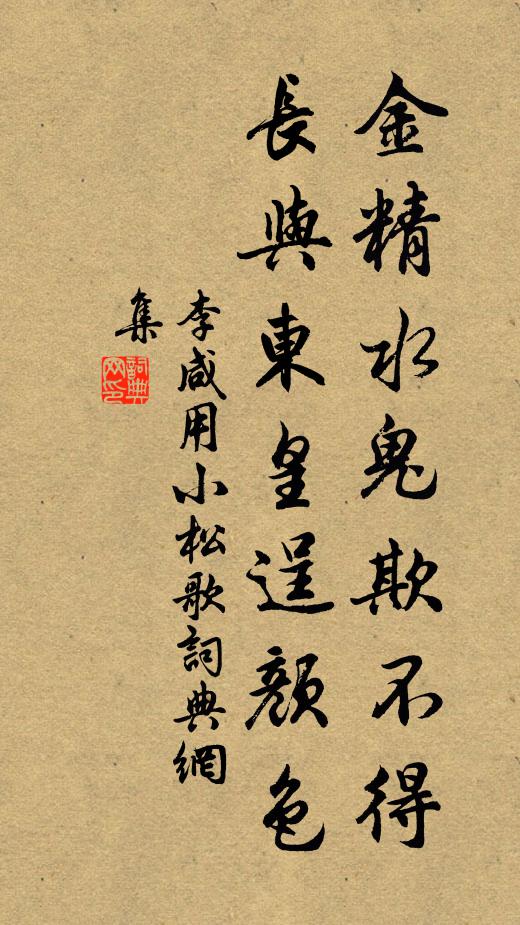 金精水鬼欺不得
長與東皇逞顏色
李咸用小松歌詞典網
集
詞典
网印